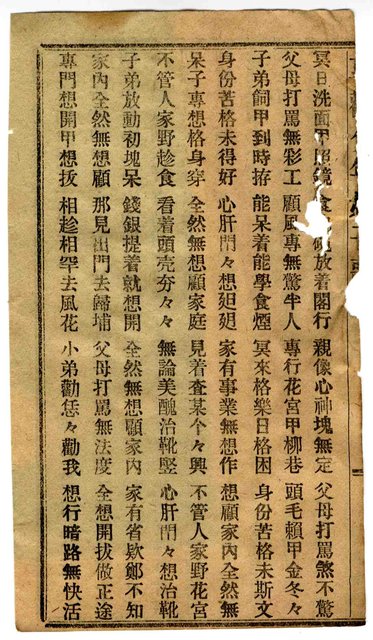 冥日洗面甲照鏡 食 碗放着閣行 親像心神塊無定 父母打罵煞不驚
父母打罵無彩工 顧風專無驚半人 專行花宮甲柳巷 頭毛賴甲金冬々
子弟飼甲到時拵 能呆着能學食煙 冥來格樂日格困 身份苦格未斯文
身份苦格未得好 心肝閂々想廻廻 家有事業無想作 想顧家內全然無
呆子專想格身穿 全然無想顧家庭 見着查某个々興 不管人家野花宮
不管人家野趁食 看着頭壳夯々々 無論美醜治靴竪 心肝閂々想治靴
子弟放動初塊呆 錢銀提着就想開 全然無想顧家內 家有省欵鄭不知
家內全然無想顧 那見出門去歸埔 父母打罵無法度 全想開拔做正途
專門想開甲想拔 相趁相罕去風花 小弟勸恁々勸我 想行暗路無快活